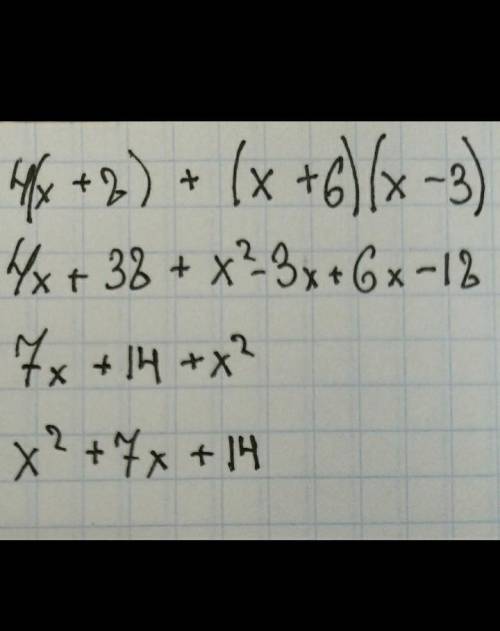 4(x + 8) + (x + 6)(x - 3)
4x + 32 + x² - 3x + 6x - 18
7x + 14 + x²
x² + 7x + 14